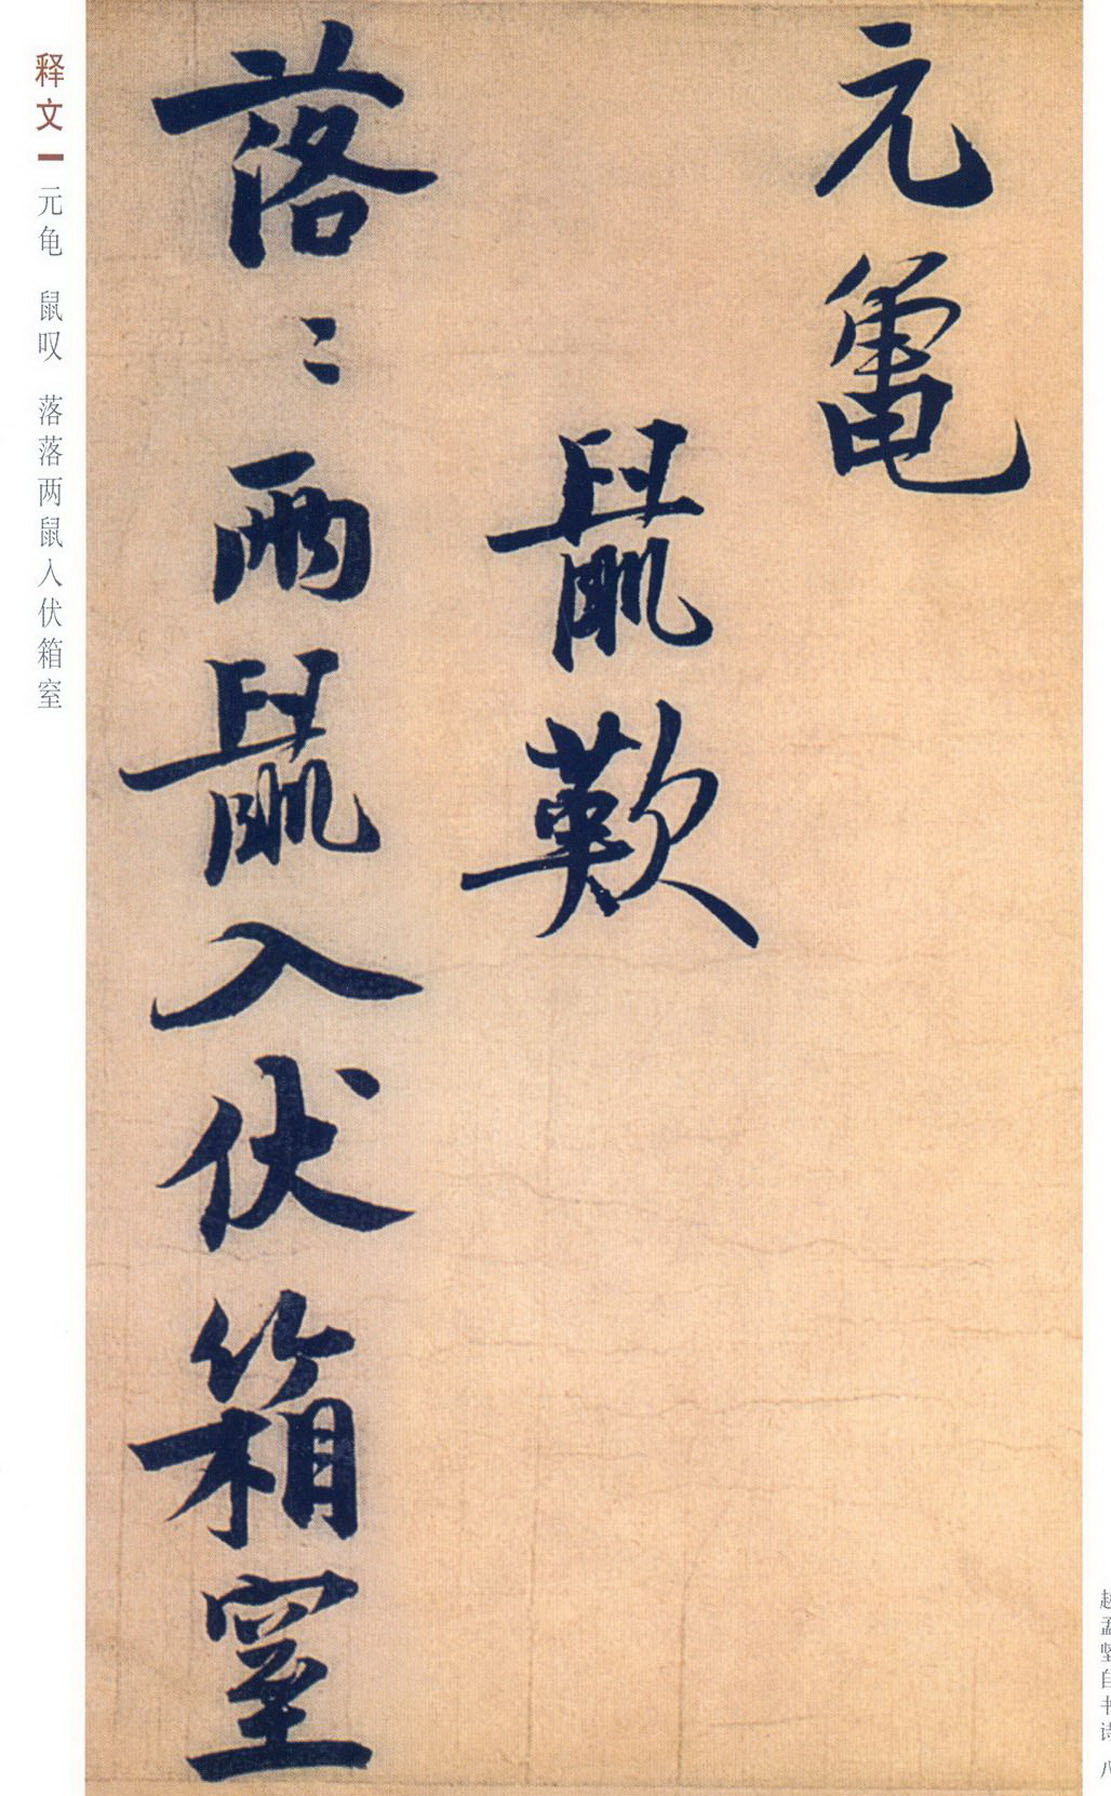 元龜
鼠歎
落〻兩鼠入伏箱窒
释文 元龟 鼠叹 落落两鼠入伏箱窒
赵孟坚自书诗 八